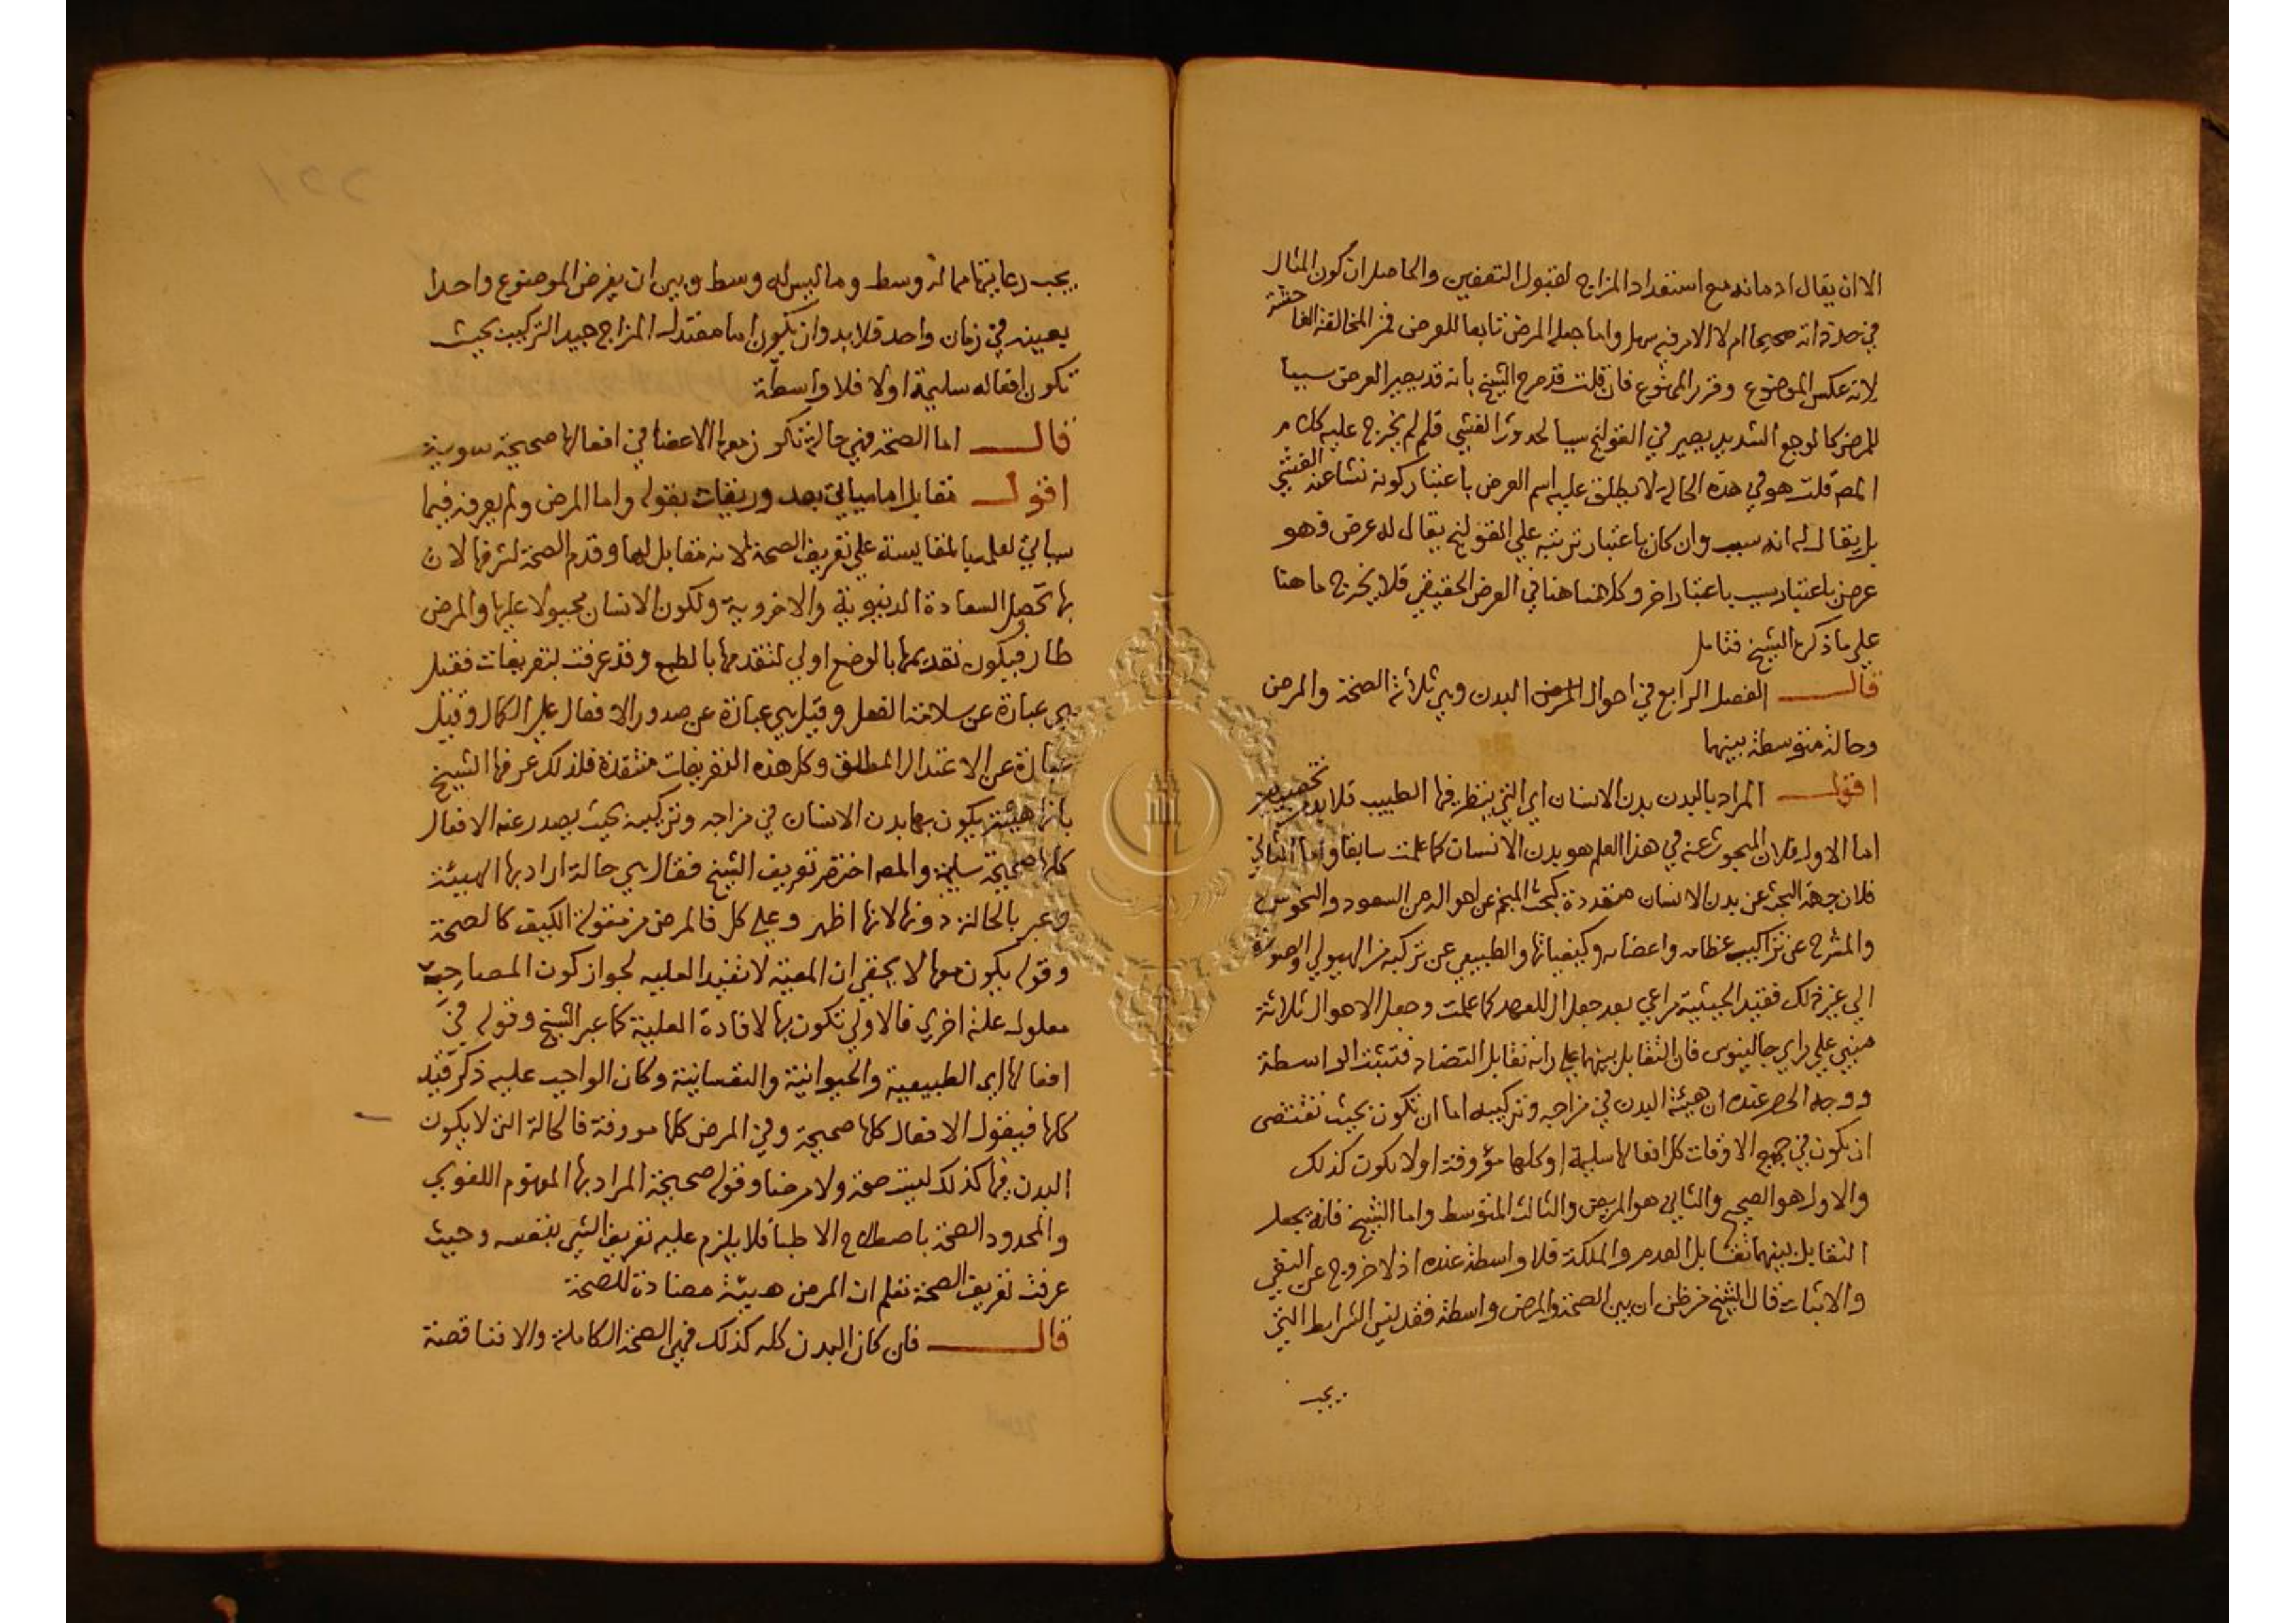 الا ان يقال ادمانه مع استعداد المزاج لقبول التعفين والحاصل ان كون المثال
في حد ذاته صحيحا ام لا الامر فيه سهل واما جعله المرض تابعا للعرض فمن المخالفة الفاحشة
لانه عكس الموضوع وقرر الممنوع فان قلت قد صرح الشيخ بانه قد يصير العرض سببا
للمرض كالوجع الشديد يصير في القولنج سببا لحدوث الغشي فلم لم يخرج عليه كلام
المص قلت هو في هذه الحالة لا يطلق عليه اسم العرض باعتبار كونه نشا عنه الغشي
بل يقال له انه سبب وان كان باعتبار ترتبه علي القولنج يقال له عرض فهو
عرض باعتبار سبب باعتبار اخر وكلامنا هنا في العرض الحقيقي فلا يخرج ما هنا
علي ما ذكره الشيخ فتامل
قال الفصل الرابع في احوال المرض البدن وهي ثلاثة الصحة والمرض
وحالة متوسطة بينهما
اقول المراد بالبدن بدن الانسان اي التي ينظر فيها الطبيب فلا بد
اما الاول فلان المبحوث عنه في هذا العلم هو بدن الانسان كما علمت سابقا واما الثاني
فلان جهة البحث عن بدن الانسان متعددة كبحث المنجم عن احواله من السعود والنحوس
والمشرح عن تراكيب عظامه واعضايه وكيفياتها والطبيعي عن تركبه من الهيولي والصورة
الي غير ذلك فقيد الحيثية مراعي بعد جعل ال للعهد كما علمت وجعل الاحوال ثلاثة
مبني علي راي جالينوس فان التقابل بينهما علي رايه تقابل التضاد فتثبت الواسطة
ووجه الحصر عنده ان هيئة البدن في مزاجه وتركيبه اما ان تكون بحيث تقتضي
ان يكون في جميع الاوقات كل افعالها سليمة او كلها مؤوفة او لا يكون كذلك
والاول هو الصحيح والثاني هو المريض والثالث المتوسط واما الشيخ فانه يجعل
التقابل بينهما تقابل العدم والملكة فلا واسطة عنده اذ لا خروج عن النفي
والاثبات قال الشيخ من ظن ان بين الصحة والمرض واسطة فقد نسي الشرايط التي
يجب
يجب رعايتها مما له وسط وما ليس له وسط وبين ان يفرض الموضوع واحدا
بعينه في زمان واحد فلا بد وان يكون اما معتدل المزاج جيد التركيب بحيث
تكون افعاله سليمة اولا فلا واسطة
قال اما الصحة فهي حالة تكون معها الاعضا في افعالها صحيحة سوية
اقول تقابل اما سياتي بعد وريقات بقوله واما المرض ولم يعرفه فيما
سياتي لعلمه بالمقايسة علي تعريف الصحة لانه مقابل لها وقدم الصحة لشرفها لان
بها تحصل السعادة الدنيوية والاخروية ولكون الانسان مجبولا عليها والمرض
طار فيكون تقديمها بالوضع اولي لتقدمها بالطبع وقد عرفت بتعريفات فقيل
هي عبارة عن سلامة الفعل وقيل هي عبارة عن صدور الافعال علي الكمال وقيل
عبارة عن الاعتدال المطلق وكل هذه التعريفات منتقدة فلذلك عرفها الشيخ
بانها هيئة يكون بها بدن الانسان في مزاجه وتركيبه بحيث يصدر عنه الافعال
كلها صحيحة سليمة والمص اختصر تعريف الشيخ فقال هي حالة اراد بها الهيئة
وعبر بالحالة دونها لانها اظهر وعلي كل فالمرض من مقولة الكيف كالصحة
وقوله يكون معها لا يخفي ان المعية لا تفيد العلية لجواز كون المصاحبة
معلولة علة اخري فالاولي تكون بها لافادة العلية كما عبر الشيخ وقوله في
افعالها اي الطبيعية والحيوانية والنفسانية وكان الواجب عليه ذكر قيد
كلها فيقول الافعال كلها صحيحة وفي المرض كلها مووفة فالحالة التي لا يكون
البدن فيها كذلك ليست صحة ولا مرضا وقوله صحيحة المراد بها المفهوم اللغوي
والمحدود الصحة باصطلاح الاطبا فلا يلزم عليه تعريف الشي بنفسه وحيث
عرفت تعريف الصحة تعلم ان المرض هيئة مضادة للصحة
قال فان كان البدن كله كذلك فهي الصحة الكاملة والا فناقصة